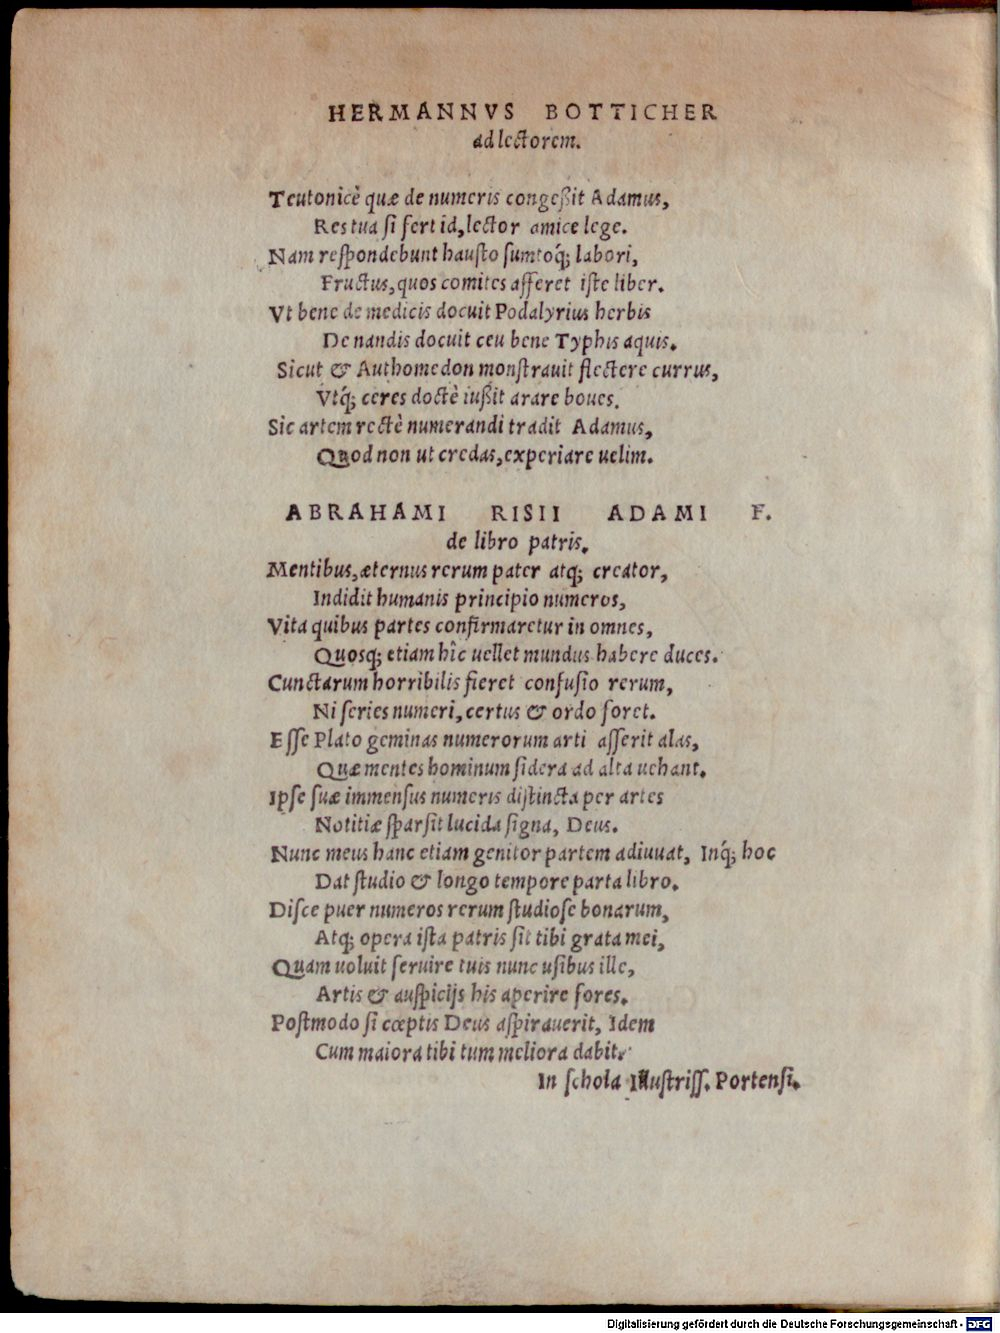 HERMANNVS BOTTICHER
ad lectorem.
Teutonicè quæ de numeris congeßit Adamus,
Res tua ſi fert id, lector amice lege.
Nam reſpondebunt hauſto ſumtoq́; labori,
Fructus, quos comites afferet iſte liber.
Vt bene de medicis docuit Podalyrius herbis
De nandis docuit ceu bene Typhis aquis.
Sicut & Authomedon monſtrauit flectere currus,
Vtq́; ceres doctè iußit arare boues.
Sic artem rectè numerandi tradit Adamus,
Quod non ut credas, experiare uelim.
ABRAHAMI RISII ADAMI F.
de libro patris.
Mentibus, æternus rerum pater atq; creator,
Indidit humanis principio numeros,
Vita quibus partes confirmaretur in omnes,
Quosq; etiam hîc uellet mundus habere duces.
Cunctarum horribilis fieret confuſio rerum,
Ni ſeries numeri, certus & ordo foret.
Eſſe Plato geminas numerorum arti aſſerit alas,
Quæ mentes hominum ſidera ad alta uehant.
Ipſe ſuæ immenſus numeris diſtincta per artes
Notitiæ ſparſit lucida ſigna, Deus.
Nunc meus hanc etiam genitor partem adiuuat, Inq́; hoc
Dat ſtudio & longo tempore parta libro.
Diſce puer numeros rerum ſtudioſe bonarum,
Atq; opera iſta patris ſit tibi grata mei,
Quam uoluit ſeruire tuis nunc uſibus ille,
Artis & auſpicijs his aperire fores.
Poſtmodo ſi cœptis Deus aſpirauerit, Idem
Cum maiora tibi tum meliora dabit.
In ſchola Illuſtriſſ. Portenſi.
Digitalisierung gefördert durch die Deutsche Forschungsgemeinschaft - DFG